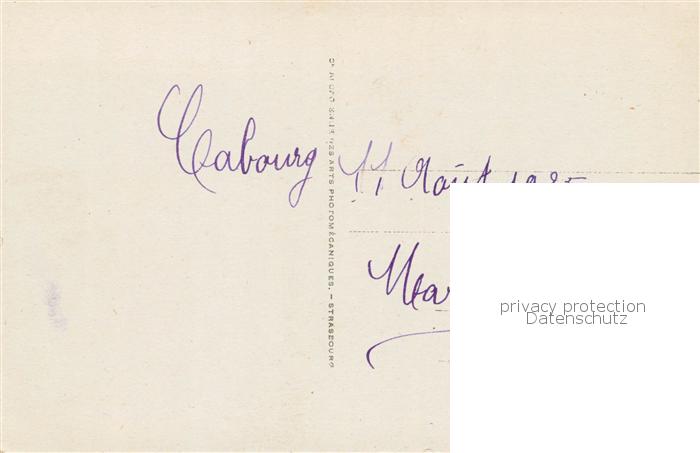 Cabourg 11 Août
ARTS PHOTOMÉCANIQUES. - STRASBOURG
privacy protection
Datenschutz